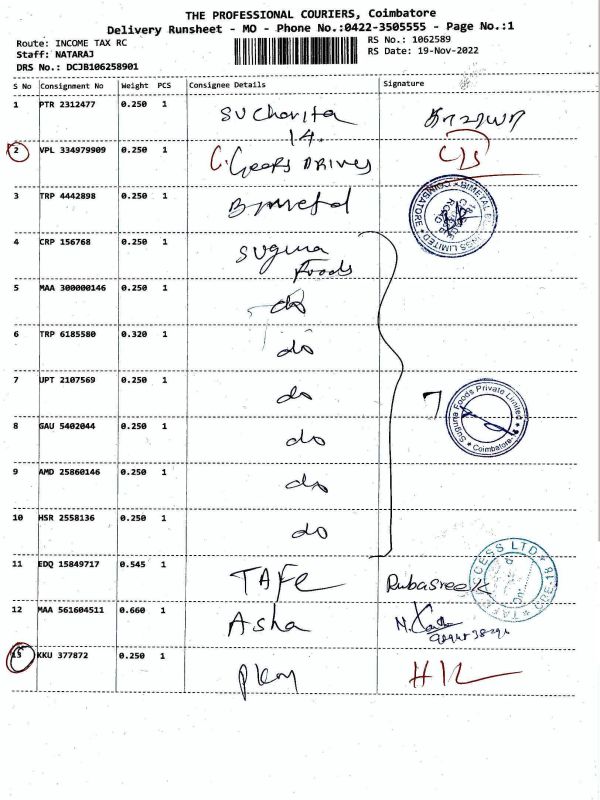 THE PROFESSIONAL COURIERS, Coimbatore
Delivery Runsheet - MO - Phone No.:0422-3505555 - Page No.:1
Route: INCOME TAX RC
Staff: NATARAJ
DRS No.: DCJB106258901
RS No.: 1062589
RS Date: 19-Nov-2022
S No Consignment No Weight PCS Consignee Details Signature
1 PTR 2312477 0.250 1 Sucharita
14.
2 VPL 334979909 0.250 1 C. Gears DRIVES C/S
3 TRP 4442898 0.250 1 Bimetal
BIMETAL LIMITED COIMBATORE
4 CRP 156768 0.250 1 Suguna
Foods
5 MAA 300000146 0.250 1 do
6 TRP 6185580 0.320 1 do
7 UPT 2107569 0.250 1 do
7
Suguna Foods Private Limited
Coimbatore
8 GAU 5402044 0.250 1 do
9 AMD 25860146 0.250 1 do
10 HSR 2558136 0.250 1 do
11 EDQ 15849717 0.545 1 TAFE Rubasree K
ACCESS LTD
12 MAA 561604511 0.660 1 Asha
13 KKU 377872 0.250 1